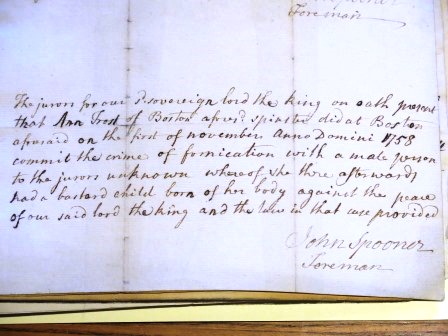 Spooner
Foreman
The jurors for our sd. sovereign lord the king on oath present
that Ann Frost of Boston afores.d spinster did at Boston
aforesaid on the first of november Anno Domini 1758
commit the crime of fornication with a male person
to the jurors unknown whereof she there afterwards
had a bastard child born of her body against the peace
of our said lord the king and the law in that case provided
John Spooner
Foreman